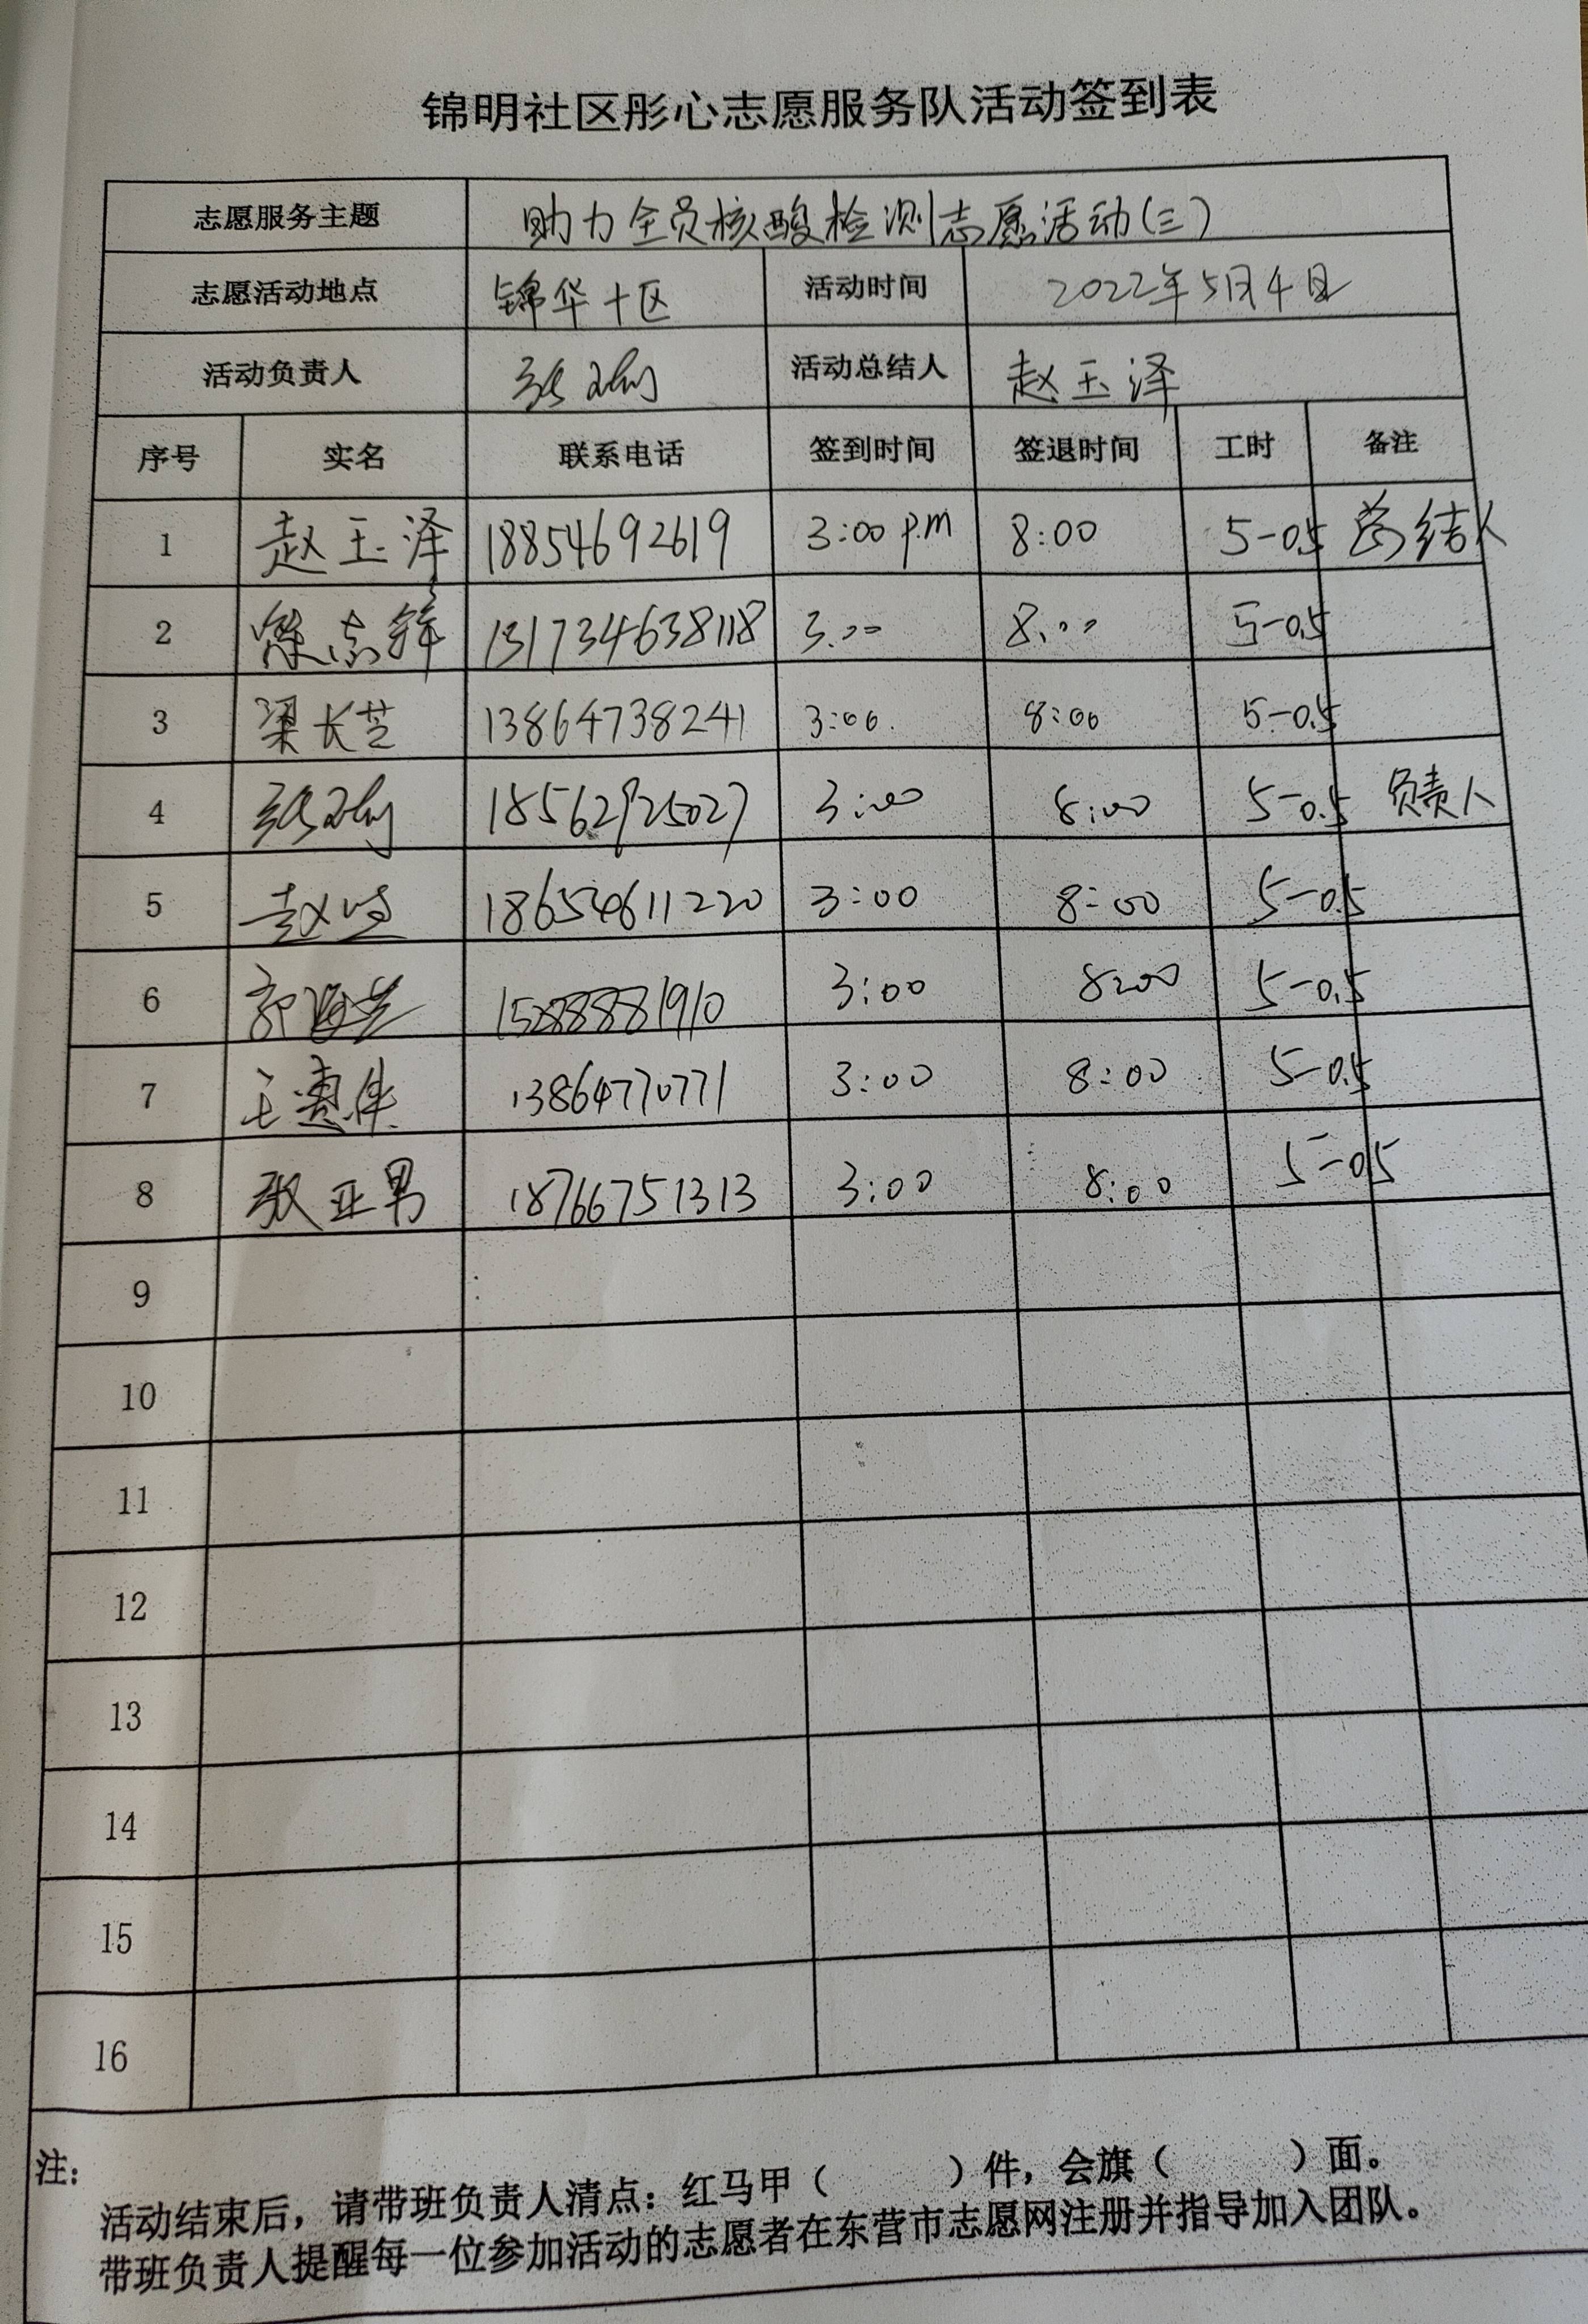 锦明社区彤心志愿服务队活动签到表
志愿服务主题 助力全员核酸检测志愿活动(三)
志愿活动地点 锦华十区 活动时间 2022年5月4日
活动负责人 活动总结人 赵玉泽
序号 实名 联系电话 签到时间 签退时间 工时 备注
1 赵玉泽 18854692619 3:00 p.m 8:00 5-0.5 总结人
2 3:00 8:00 5-0.5
3 梁长芝 13864738241 3:00 8:00 5-0.5
4 18562925027 3:00 8:00 5-0.5 负责人
5 18654611220 3:00 8:00 5-0.5
6 3:00 8:00 5-0.5
7 13864770771 3:00 8:00 5-0.5
8 张亚男 18766751313 3:00 8:00 5-0.5
9
10
11
12
13
14
15
16
注：
活动结束后，请带班负责人清点：红马甲（ ）件，会旗（ ）面。
带班负责人提醒每一位参加活动的志愿者在东营市志愿网注册并指导加入团队。